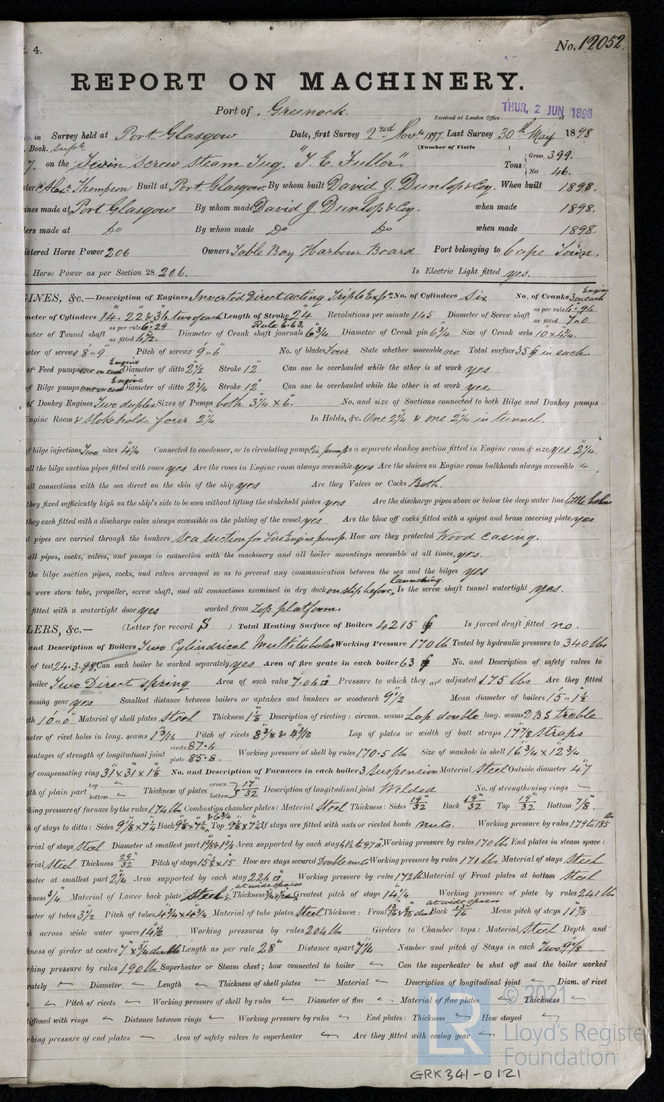 . 4.
No. 12052.
REPORT ON MACHINERY.
Port of Greenock
Received at London Office
THUR, 2 JUN 1898
in Survey held at Port Glasgow Date, first Survey 2nd Novr 1897. Last Survey 30th May 1898
Book. (Number of Visits
on the Twin Screw Steam Tug, "T. E. Fuller" Tons Gross 399. Net 46.
Thompson Built at Port Glasgow. By whom built David J. Dunlop & Coy. When built 1898.
ines made at Port Glasgow By whom made David J. Dunlop & Coy. when made 1898.
lers made at Do By whom made Do when made 1898.
istered Horse Power 206 Owners Table Bay Harbour Board Port belonging to Cape Town.
Horse Power as per Section 28. 206. Is Electric Light fitted yes.
GINES, &c.—Description of Engines Inverted Direct Acting Triple Expn. No. of Cylinders Six No. of Cranks 3 in each Engine
meter of Cylinders 14". 22" & 36" two of each Length of Stroke 24" Revolutions per minute 145 Diameter of Screw shaft as per rule 6.96 as fitted 7.0
meter of Tunnel shaft as per rule 6.29 as fitted 6 1/2 Diameter of Crank shaft journals 6 3/4 Rule 6.63 Diameter of Crank pin 6 3/4 Size of Crank webs 10 x 4 3/4
meter of screws 8"9 Pitch of screws 9"6 No. of blades Four State whether moveable no Total surface 35 in each.
of Feed pumps one in each Engine Diameter of ditto 2 1/2 Stroke 12" Can one be overhauled while the other is at work yes
of Bilge pumps one in each Engine Diameter of ditto 2 3/4 Stroke 12" Can one be overhauled while the other is at work yes.
of Donkey Engines Two duplex Sizes of Pumps both 3 3/4 x 6". No. and size of Suctions connected to both Bilge and Donkey pumps
Engine Room & stokeholds four 2 1/4 In Holds, &c. One 2 1/4 & one 2 1/4 in tunnel.
of bilge injections Two sizes 4 1/4 Connected to condenser, or to circulating pump Cir. pumps Is a separate donkey suction fitted in Engine room & size yes 2 3/4"
all the bilge suction pipes fitted with roses yes Are the roses in Engine room always accessible yes Are the sluices on Engine room bulkheads always accessible
all connections with the sea direct on the skin of the ship yes Are they Valves or Cocks Both.
they fixed sufficiently high on the ship's side to be seen without lifting the stokehold plates yes Are the discharge pipes above or below the deep water line little below
they each fitted with a discharge valve always accessible on the plating of the vessel yes Are the blow off cocks fitted with a spigot and brass covering plate yes
at pipes are carried through the bunkers sea suction for Fire Engine pump. How are they protected Wood casing.
all pipes, cocks, valves, and pumps in connection with the machinery and all boiler mountings accessible at all times yes.
the bilge suction pipes, cocks, and valves arranged so as to prevent any communication between the sea and the bilges yes
n were stern tube, propeller, screw shaft, and all connections examined in dry dock on slip before launching. Is the screw shaft tunnel watertight yes.
fitted with a watertight door yes worked from top platform.
LERS, &c.— (Letter for record S ) Total Heating Surface of Boilers 4215 Is forced draft fitted no.
and Description of Boilers Two Cylindrical Multitubular Working Pressure 170 lb Tested by hydraulic pressure to 340 lbs
of test 24.3.98. Can each boiler be worked separately yes Area of fire grate in each boiler 63 No. and Description of safety valves to
boiler Two Direct spring Area of each valve 7.06 Pressure to which they are adjusted 175 lbs Are they fitted
easing gear yes Smallest distance between boilers or uptakes and bunkers or woodwork 9 1/2 Mean diameter of boilers 15"-1 1/2
th 10"0" Material of shell plates steel Thickness 1 1/8 Description of riveting: circum. seams Lap double long. seams D.B.S treble
eter of rivet holes in long. seams 1 3/16 Pitch of rivets 8 3/8 & Lap of plates or width of butt straps 17 7/8 straps
centages of strength of longitudinal joint rivets 87.4 plate 85.8. Working pressure of shell by rules 170.5 lb Size of manhole in shell 16 3/4 x 12 3/4
of compensating ring 31 x 31 x 1 1/8 No. and Description of Furnaces in each boiler 3 Suspension Material Steel Outside diameter 47
gth of plain part top bottom Thickness of plates crown bottom 17/32 Description of longitudinal joint Welded No. of strengthening rings
king pressure of furnace by the rules 174 lb Combustion chamber plates: Material Steel Thickness: Sides 19/32 Back 19/32 Top 19/32 Bottom 7/8.
h of stays to ditto: Sides 9 7/8 x 7 1/4 Back 9 3/8 x 7 Top 9 3/8 x 7 If stays are fitted with nuts or riveted heads nuts. Working pressure by rules 179 to 185 lbs
erial of stays Steel Diameter at smallest part Area supported by each stay Working pressure by rules 170 lb End plates in steam space:
erial Steel Thickness 29/32 Pitch of stays 15 1/8 x 15 How are stays secured Double nuts Working pressure by rules 171 lb Material of stays Steel
meter at smallest part 2 3/4 Area supported by each stay 226 Working pressure by rules 172 lb Material of Front plates at bottom Steel
kness 3/4 Material of Lower back plate Steel Thickness at wide spaces Greatest pitch of stays 14 1/4 Working pressure of plate by rules 241 lbs
meter of tubes 3 1/2 Pitch of tubes 4 3/4 x 4 3/4 Material of tube plates Steel Thickness: Front Back at wide spaces Mean pitch of stays 11 7/8
h across wide water spaces 14 1/2 Working pressures by rules 204 lb Girders to Chamber tops: Material Steel Depth and
kness of girder at centre 7" x 3/4 double Length as per rule 28" Distance apart 7 1/4 Number and pitch of Stays in each Two 9 3/8
king pressure by rules 190 lbs Superheater or Steam chest; how connected to boiler Can the superheater be shut off and the boiler worked
rately Diameter Length Thickness of shell plates Material Description of longitudinal joint Diam. of rivet
Pitch of rivets Working pressure of shell by rules Diameter of flue Material of flue plates Thickness
tiffened with rings Distance between rings Working pressure by rules End plates: Thickness How stayed
rking pressure of end plates Area of safety valves to superheater Are they fitted with easing gear
© 2021
LR
Lloyd's Register
Foundation
GRK341-0121